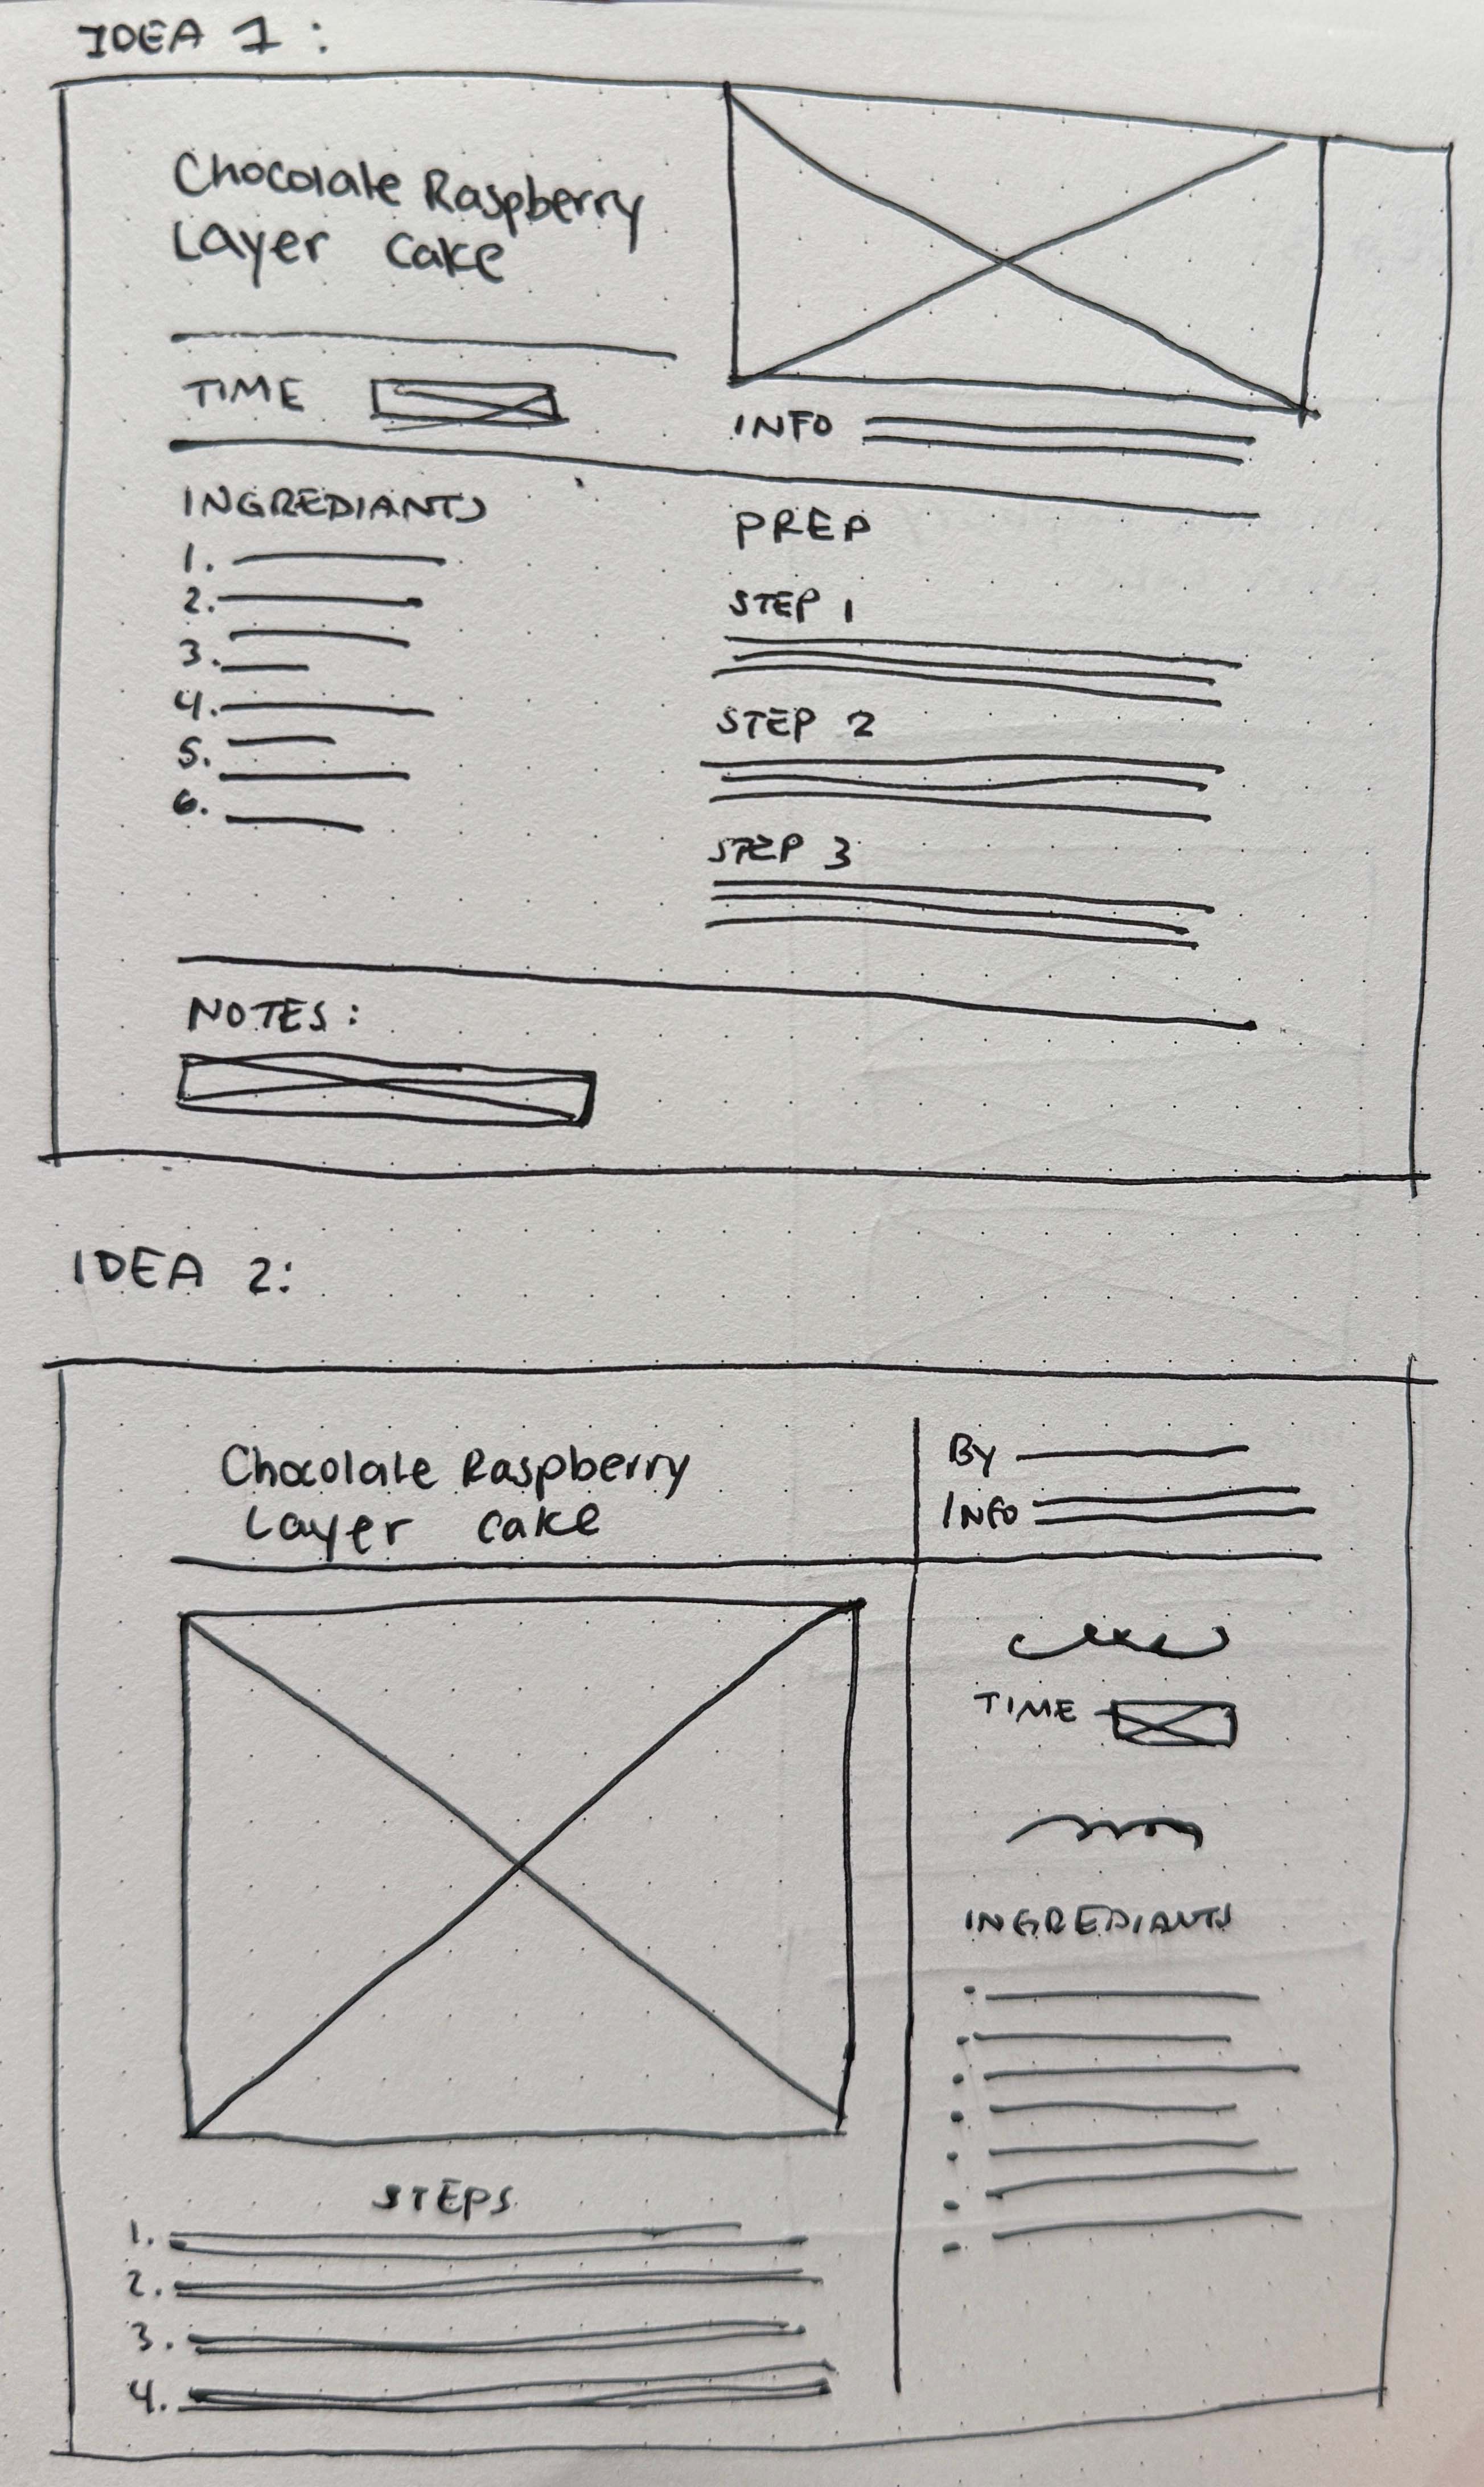 IDEA 1:
Chocolate Raspberry
Layer Cake
TIME
INFO
INGREDIANTS
1.
2.
3.
4.
5.
6.
PREP
STEP 1
STEP 2
STEP 3
NOTES:
IDEA 2:
Chocolate Raspberry
Layer Cake
BY
INFO
TIME
INGREDIANTS
STEPS
1.
2.
3.
4.